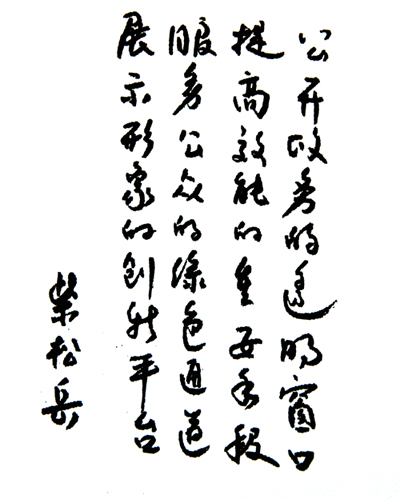 公开政务的透明窗口
提高效能的重要手段
服务公众的绿色通道
展示形象的创新平台
柴松岳